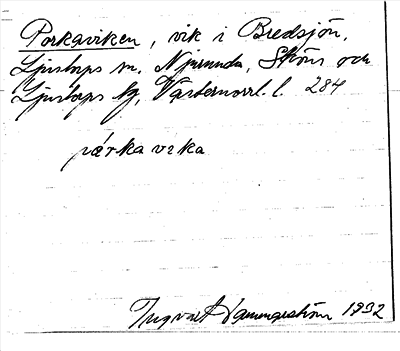 Porkaviken, vik i Bredsjön,
Ljustorps sn. Njurunda, Sköns och
Ljustorps tg, Västernorrl. l. 284
pårkavika
Ingvar Hammarström 1932